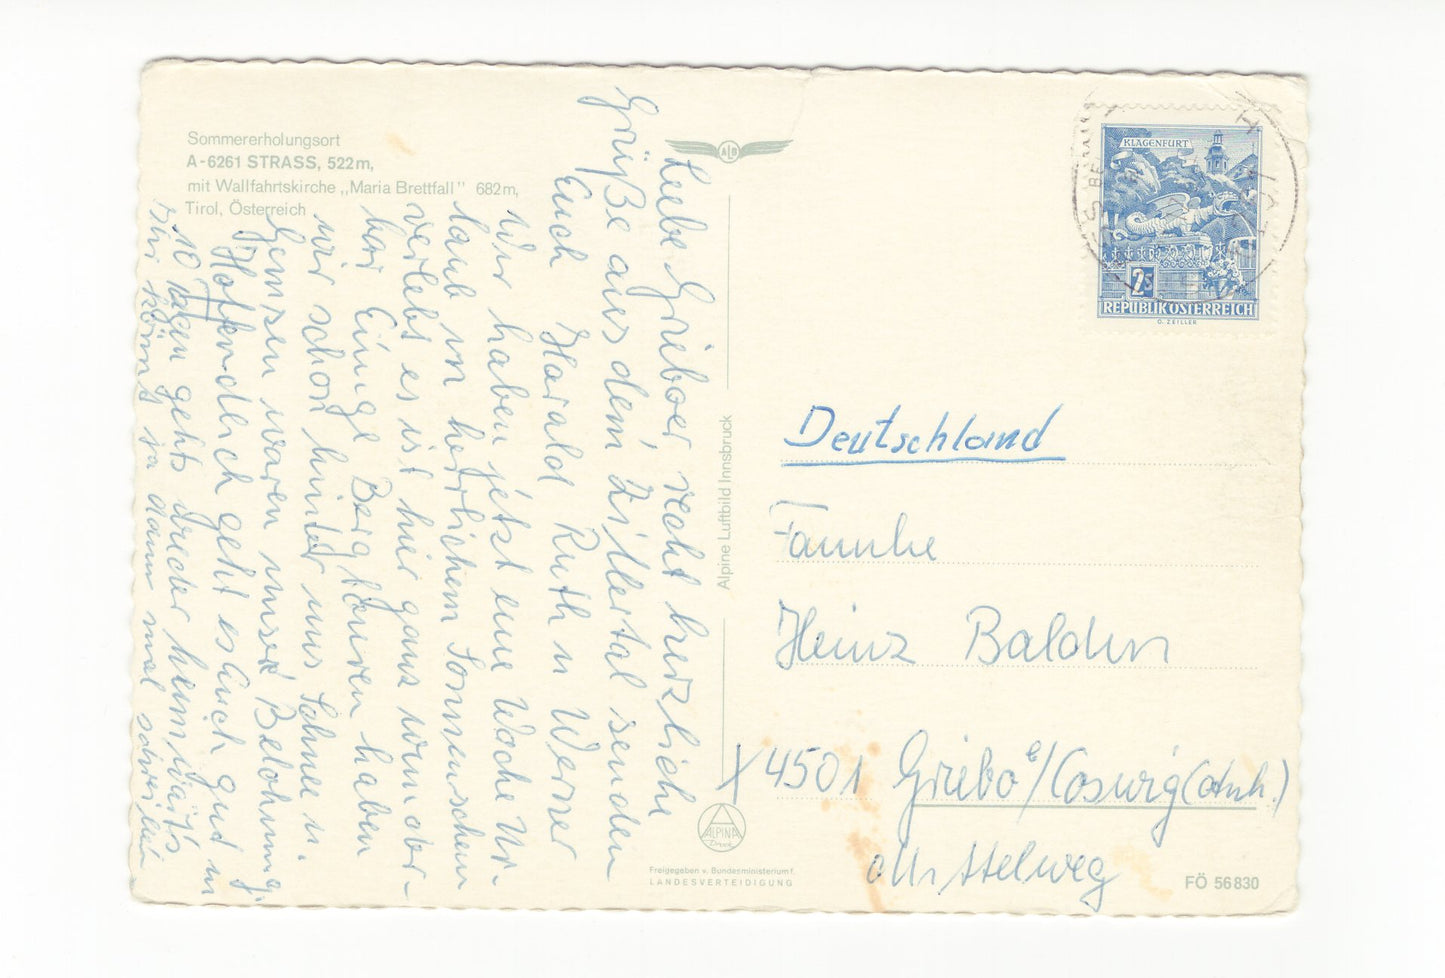 Sommererholungsort
A-6261 STRASS, 522m,
mit Wallfahrtskirche „Maria Brettfall" 682m,
Tirol, Österreich
Liebe Grieboer, recht herzliche
Grüße aus dem Zillertal senden
Euch Harald Ruth u Werner
Wir haben jetzt eine Woche Ur-
laub in herrlichem Sonnenschein
verlebt es ist hier ganz wunder-
bar Einige Bergtouren haben
wir schon hinter uns Schnee u.
Gemsen waren unsre Belohnung
Hoffendlich geht es Euch gut in
10 tagen gehts wieder heimwärts
Ihr könnt ja dann mal schreiben
ALB
Alpine Luftbild Innsbruck
ALPINA
Druck
Freigegeben v. Bundesministerium f.
LANDESVERTEIDIGUNG
KLAGENFURT
2.5
REPUBLIK ÖSTERREICH
O. ZEILLER
Deutschland
Familie
Heinz Baldin
X 4501 Griebo b/Coswig (Anh.)
Mittelweg
FÖ 56830